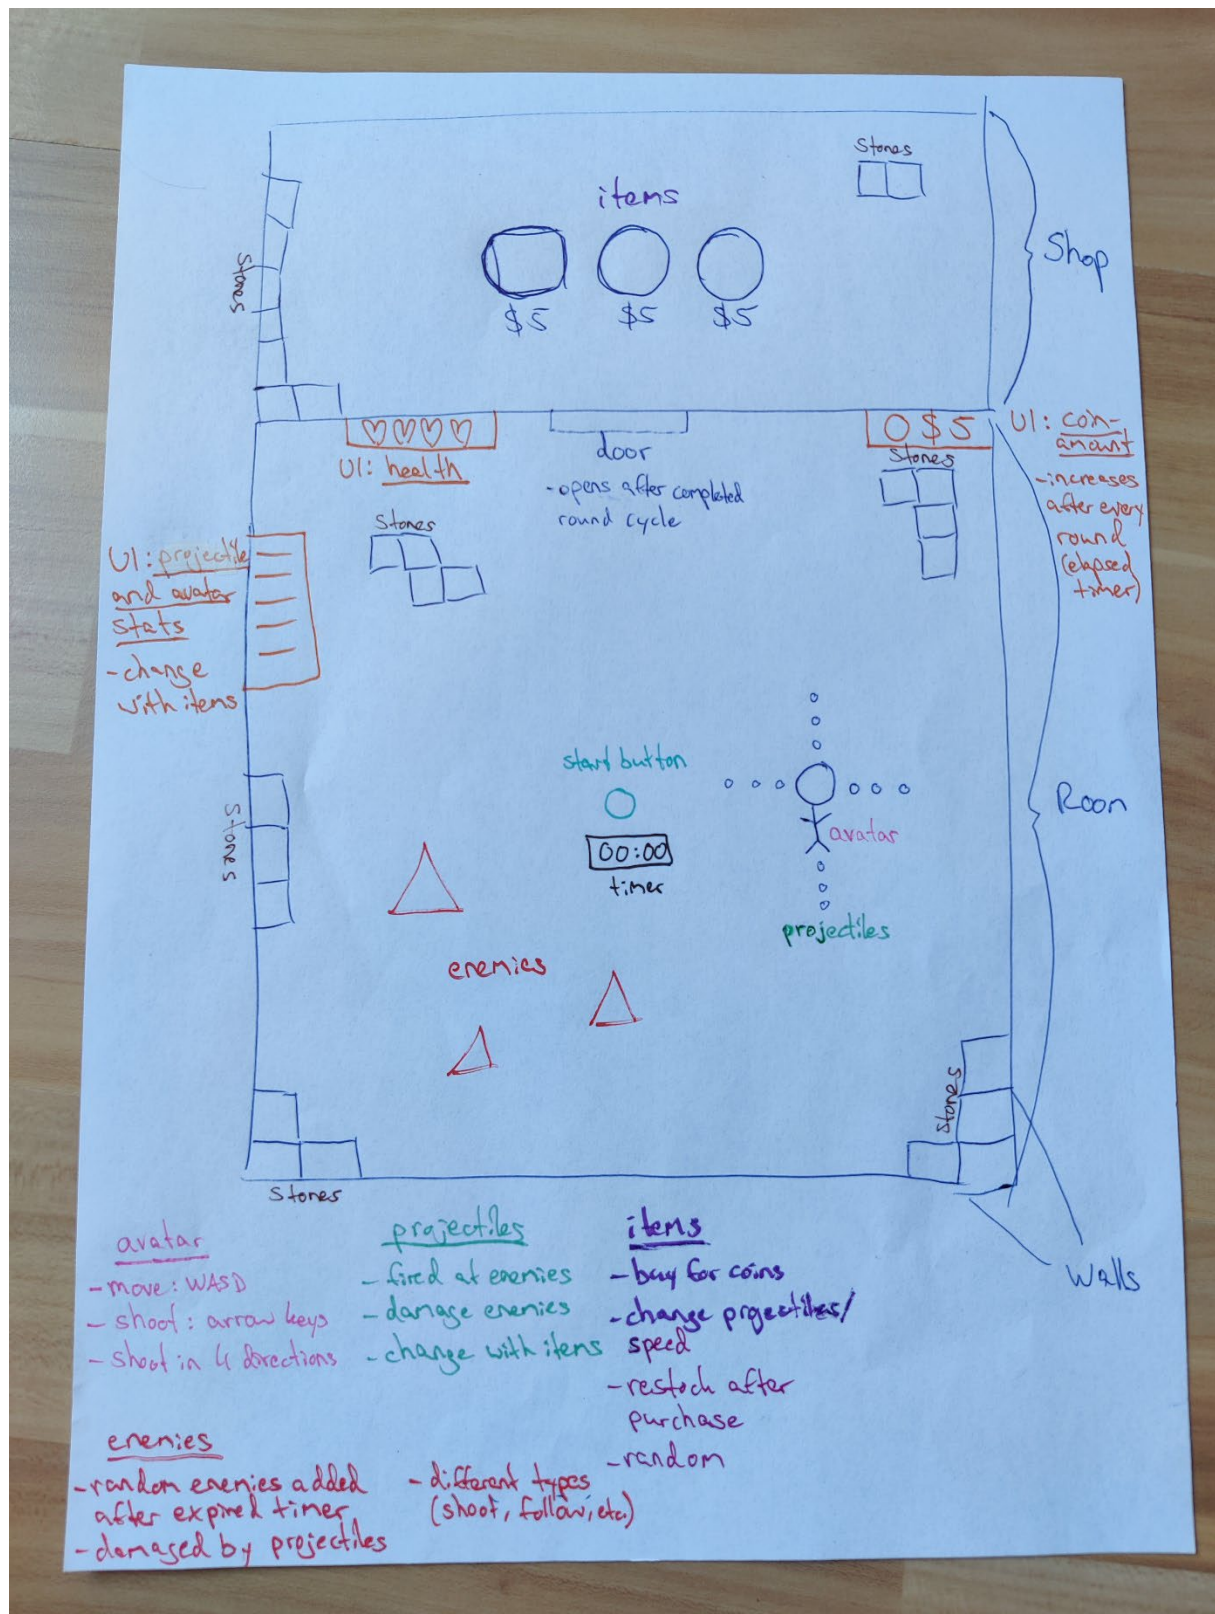 Stones
items
Shop
Stones
$5
$5
$5
O $ 5
UI: coin-
amount
- increases
after every
round
(elapsed
timer)
UI: health
door
- opens after completed
round cycle
Stones
Stones
UI: projectile
and avatar
stats
- change
with items
start button
00:00
timer
avatar
projectiles
Room
Stones
enemies
Stones
Stones
Walls
avatar
- move: WASD
- shoot: arrow keys
- shoot in 4 directions
projectiles
- fired at enemies
- damage enemies
- change with items
items
- buy for coins
- change projectiles/
speed
- restock after
purchase
- random
enemies
- random enemies added
after expired timer
- damaged by projectiles
- different types
(shoot, follow, etc.)